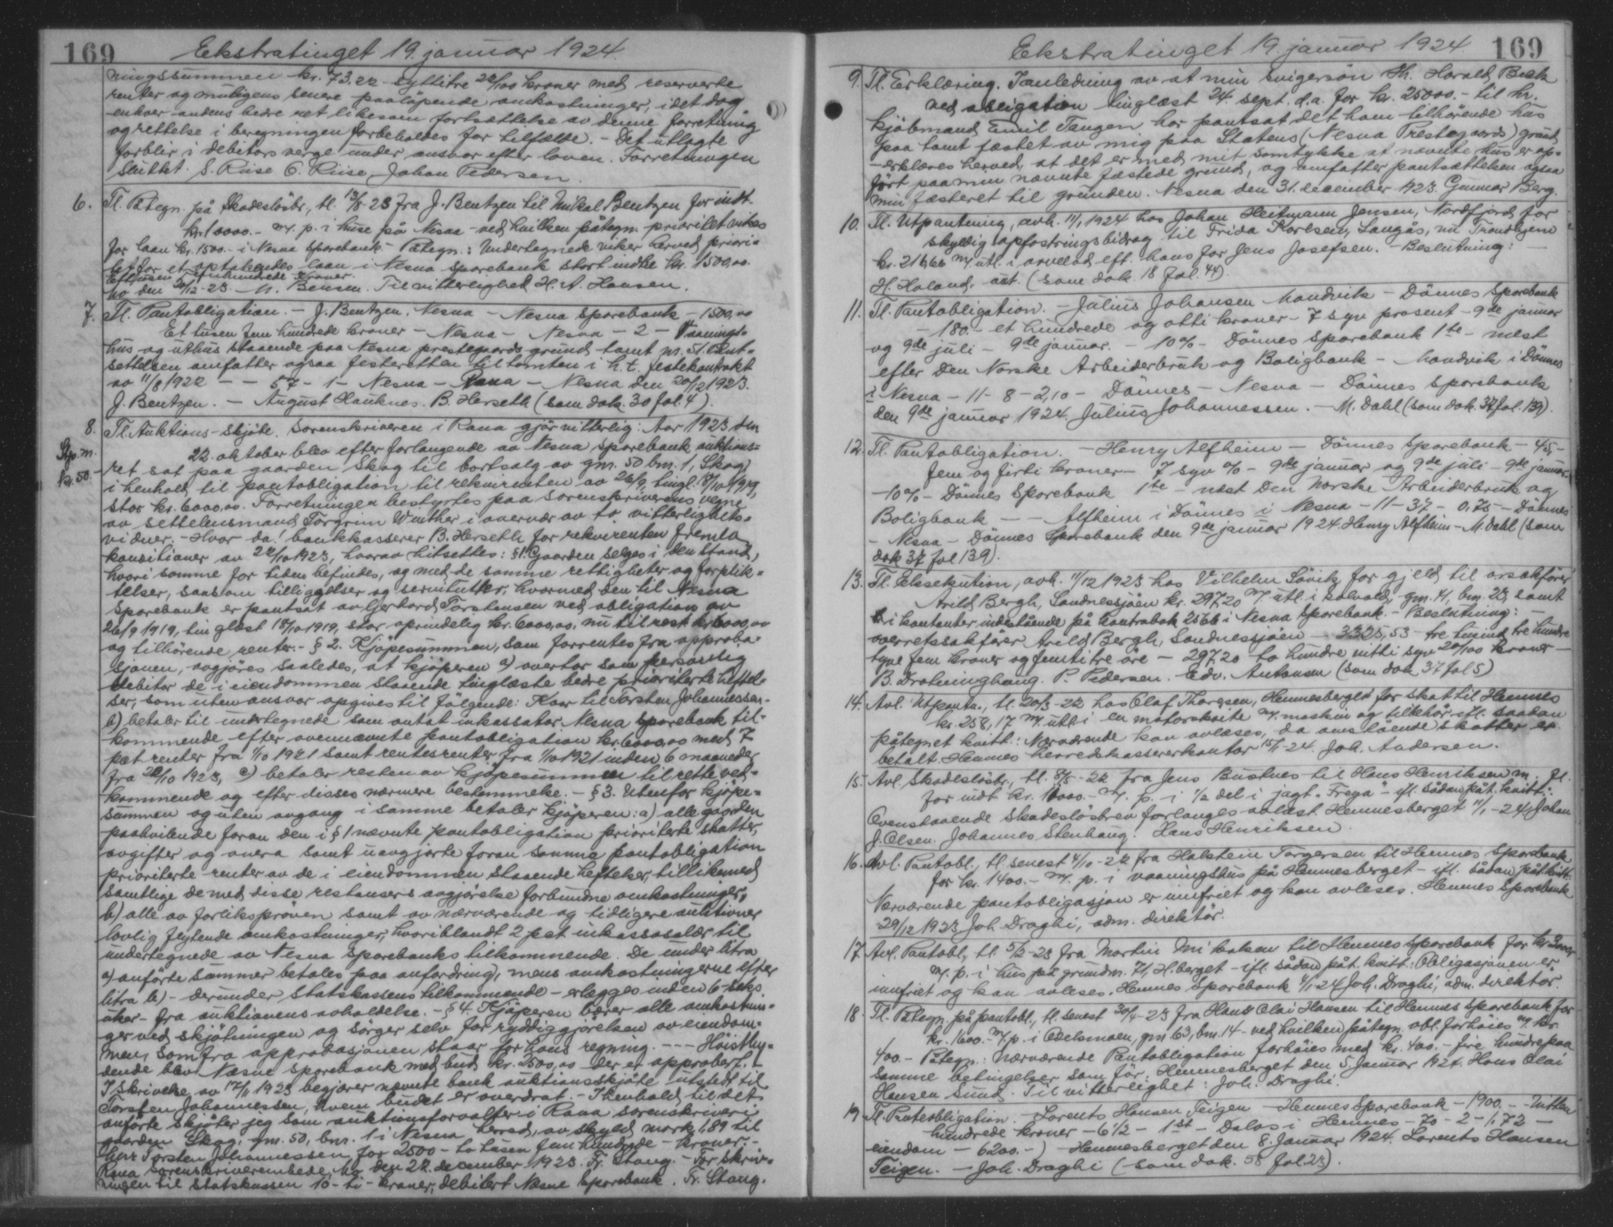 169 Ekstratinget 19. januar 1924.
ningssummen kr. 73.22 - syttitre 22/100 kroner med reserverte
renter og muligens senere paaløpende omkostninger, idet dog
enhver andens bedre ret likesom fortsættelse av denne forretning
og rettelse i beregningen forbeholdes for tilfælde. - Det utlagte
forblir i debitors verge under ansvar efter loven. Forretningen
sluttet. S. Riise O. Riise, Johan Pedersen.
6. Tl. Påtegn. på skadesløsbr., tl. 23 fra J. Bentzen til Mikal Bentzen for indt.
kr. 10000.- m. p. i huse på Nesna - ved hvilken påtegn. prioritet vikes
for laan kr. 1500.- i Nesna Sparebank - Påtegn.: Undertegnede viker herved priori-
tet for et optagendes laan i Nesna Sparebank stort indtil kr. 1500,00
Ettusen femhundrede kroner.
Mo den 20/12-23 - M. Bensen. Til vitterlighet H. A. Hansen.
7. Tl. Pantobligation. - J. Bentzen, Nesna - Nesna Sparebank - 1500,00
Et tusen fem hundrede kroner - Nesna - Nesna - 2 - Vaanings-
hus og uthus staaende paa Nesna prestegaards grund samt pr. st. Pant-
settelsen omfatter ogsaa festeretten til tomten i h. t. festekontrakt
av 11/8 1922 - - 57 - 1 - Nesna - Rana - Nesna den 20/12 1923.
J. Bentzen. - August Hauknes. B. Herseth (som dok. 30 fol. 4).
8. Tl. Auktions-skjøte. Sorenskriveren i Rana gjør vitterlig: Aar 1923 den
Stp. m. 22. oktober blev efter forlangende av Nesna Sparebank auktions-
kr. 50.- ret sat paa gaarden Skog til bortsalg av gm. 50 bm. 1, Skog,
i henhold til pantobligation til rekvirenten av 26/9 tingl. 18/10 1919,
stor kr. 6000,00. Forretningen bestyrtes paa sorenskriverens vegne
av settelensmand Torgrim Winther i overvær av to vitterlighets-
vidner. - Hvor da: bankkasserer B. Herseth for rekvirenten fremla
konditioner av 22/10 1923, hvorav hitsettes: §1. Gaarden selges i den stand,
hvori samme for tiden befindes, og med de samme rettigheter og forplik-
telser, saasom tilliggelser og servitutter, hvormed den til Nesna
Sparebank er pantsat av Gerhard Torstensen ved obligation av
26/9 1919, tinglæst 18/10 1919, stor oprindelig kr. 6000,00, nu til rest kr. 6000,00
og tilhørende renter. - § 2. Kjøpesummen, som forrentes fra approba-
sjonen, avgjøres saaledes, at kjøperen a) overtar som personlig
debitor de i eiendommen staaende tinglæste bedre prioriterte heftel-
ser, som uten ansvar opgives til følgende: Kaar til Torsten Johannessen.
b) betaler til undertegnede som antat inkassator Nesna Sparebank til-
kommende efter ovennævnte pantobligation kr. 6000,00 med 7
pct renter fra 1/10 1921 samt rentesrenter fra 1/10 1921 inden 6 maaneder
fra 22/10 1923, c) betaler resten av kjøpesummen til rette ved-
kommende og efter disses nærmere bestemmelse. - § 3. Utenfor kjøpe-
summen og uten avgang i samme betaler kjøperen: a) alle gaarden
paahvilende foran den i § 1 nævnte pantobligation prioriterte skatter,
avgifter og onera samt uavgjorte foran samme pantobligation
prioriterte renter av de i eiendommen staaende heftelser, tillikemed
samtlige de med disse restansers avgjørelse forbundne omkostninger,
b) alle av forliksprøven samt av nærværende og tidligere auktioner
lovlig flytende omkostninger, hvoriblandt 2 pct inkassosalær til
undertegnede av Nesna Sparebanks tilkommende. De under litra
a) anførte summer betales paa anfordring, mens omkostningerne efter
litra b) - derunder statskassens tilkommende - erlegges inden 6 seks
uker fra auktionens avholdelse. - § 4. Kjøperen bærer alle omkostnin-
ger ved skjøtningen og sørger selv for ryddiggjørelsen av eiendom-
men, som fra approbasjonen staar for hans regning. --- Høistby-
dende blev Nesna Sparebank med bud kr. 2500,00 - Der er approbert. -
I skrivelse av 17/11 1923 begjærer nævnte bank auktionsskjøte utstedt til
Torsten Johannessen, hvem budet er overdrat. - I henhold til det
anførte skjøter jeg som auktionsforvalter i Rana sorenskriveri
gaarden Skog, gm. 50, bnr. 1 i Nesna herred, av skyld mark 1,89 til
herr Torsten Johannessen for 2500 - to tusen fem hundrede - kroner. -
Rana Sorenskriverembede, Mo den 22. december 1923. Fr. Stang. - For skriv-
ningen til statskassen 10 - ti - kroner, debitert Nesna Sparebank. Fr. Stang.
Ekstratinget 19. januar 1924. 169
9. Tl. Erklæring. I anledning av at min svigersøn Hr. Harald Beck
ved obligation tinglæst 24. sept. d.a. for kr. 25000.- til hr.
kjøbmand Emil Tangen har pantsat det ham tilhørende hus
paa tomt fæstet av mig paa Statens (Nesna Prestegaards) grund
- erklæres herved, at det er med mit samtykke at nævnte hus er op-
ført paa min nævnte fæstede grund, og omfatter pantsættelsen ogsaa
min fæsteret til grunden. Nesna den 31. december 1923. Gunnar Berg.
10. Tl. Utpantning, avh. 11/1 1924 hos Johan Heitmann Jensen, Nordfjord for
skyldig opfostringsbidrag til Frida Karlsen, Langås, nu Trondhjem
kr. 216,66 m/ utl. i arvelod eft. hans far Jens Josefsen. Beslutning: -
H. Haland, aut. (som dok 18 fol. 44).
11. Tl. Pantobligation. - Julius Johansen Mandvik - Dønnes Sparebank
- 180 - et hundrede og otti kroner - 7 syv prosent - 9de januar
og 9de juli - 9de januar. - 10% - Dønnes Sparebank 1ste - næst
efter Den Norske Arbeiderbruk og Boligbank - Mandvik i Dønnes
i Nesna - 11 - 8 - 2,10 - Dønnes - Nesna - Dønnes Sparebank
den 9de januar 1924. Julius Johannessen. - M. Dahl (som dok. 37 fol. 139).
12. Tl. Pantobligation. - Henry Alfheim - Dønnes Sparebank - 45,-
Fem og firti kroner - 7 syv % - 9de januar og 9de juli - 9de januar.
- 10% - Dønnes Sparebank 1ste - næst Den Norske Arbeiderbruk og
Boligbank - - Alfheim i Dønnes i Nesna - 11 - 37 - 0,75 - Dønnes
- Nesna - Dønnes Sparebank den 9de januar 1924. Henry Alfheim - M. Dahl (som
dok 37 fol 139).
13. Tl. Eksekution, avh. 11/12 1923 hos Vilhelm Løvik for gjeld til orsakfører
Arild Bergh, Sandnessjøen kr. 297,20 m/ utl. i gm. 41, bm. 23 samt
i kontanter indestående på kontrabok 2566 i Nesna Sparebank - Beslutning: -
overretssakfører Arild Bergh, Sandnessjøen - 2325,53 - tre hundre
tyve fem kroner og femtitre øre - 297,20 to hundre nitti syv 20/100 kroner -
B. Drahningbang. P. Pedersen. Edv. Antonsen (som dok 37 fol 5)
14. Avl. Utpantn., tl. 20/3-22 hos Olaf Thoresen, Hemnesberget for skat til Hemnes
kr. 258,17 m/ utl. i en motorskøite m/ maskin og tilbehør ifl. saadan
påtegnet kvitt.: Nærværende kan avlæses, da ovenstående skatter er
betalt. Hemnes herredskassererkontor 15/1-24. Joh. Andersen.
15. Avl. Skadesløsbr., tl. 8/5-22 fra Jens Bustnes til Hans Henriksen m. fl.
for indt kr. 11000.- m. p. i 1/2 del i jagt "Freya" - ifl. sådan påt. kvitt.:
Ovenstaaende skadesløsbrev forlanges avlæst Hemnesberget 11/1-24 Johan
J. Olsen. Johannes Stenhaug. Hans Henriksen.
16. Avl. Pantobl., tl. senest 4/10-22 fra Halstein Torgersen til Hemnes Sparebank
for kr. 1400.- m. p. i vaaningshus på Hemnesberget - ifl. sådan påt. kvitt.
Nærværende pantobligasjon er innfriet og kan avleses. Hemnes Sparebank
29/12 1923 Joh. Draghi, adm. direktør.
17. Avl. Pantobl., tl. 5/2-23 fra Martin Mikalsen til Hemnes Sparebank for kr.
m. p. i hus på grundn. 71, H.berget - ifl. sådan påt. kvitt: Obligasjonen er
innfriet og kan avleses. Hemnes Sparebank 11/1 24 Joh. Draghi, adm. direktør.
18. Tl. Påtegn. på pantobl., tl. senest 30/1-23 fra Hans Olai Hansen til Hemnes Sparebank for
kr. 1600.- m/p. i Odelsmoen, gm 63, bm. 14 - ved hvilken påtegn. obl. forhøies m. kr.
400.- Påtegn.: Nærværende Pantobligation forhøies med kr. 400.- fire hundre paa
samme betingelser som før. Hemnesberget den 5. januar 1924. Hans Olai
Hansen Sund. Til vitterlighet: Joh. Draghi.
19. Tl. Panteobligation. - Lorents Hansen Teigen - Hemnes Sparebank - 1900.- - Nitten
hundrede kroner - 6½ - 1ste - Dalos i Hemnes - 70 - 2 - 1,72 -
eiendom - 6200.-) - Hemnesberget den 8. Januar 1924. Lorents Hansen
Teigen. - Joh. Draghi (som dok. 58 fol. 23).